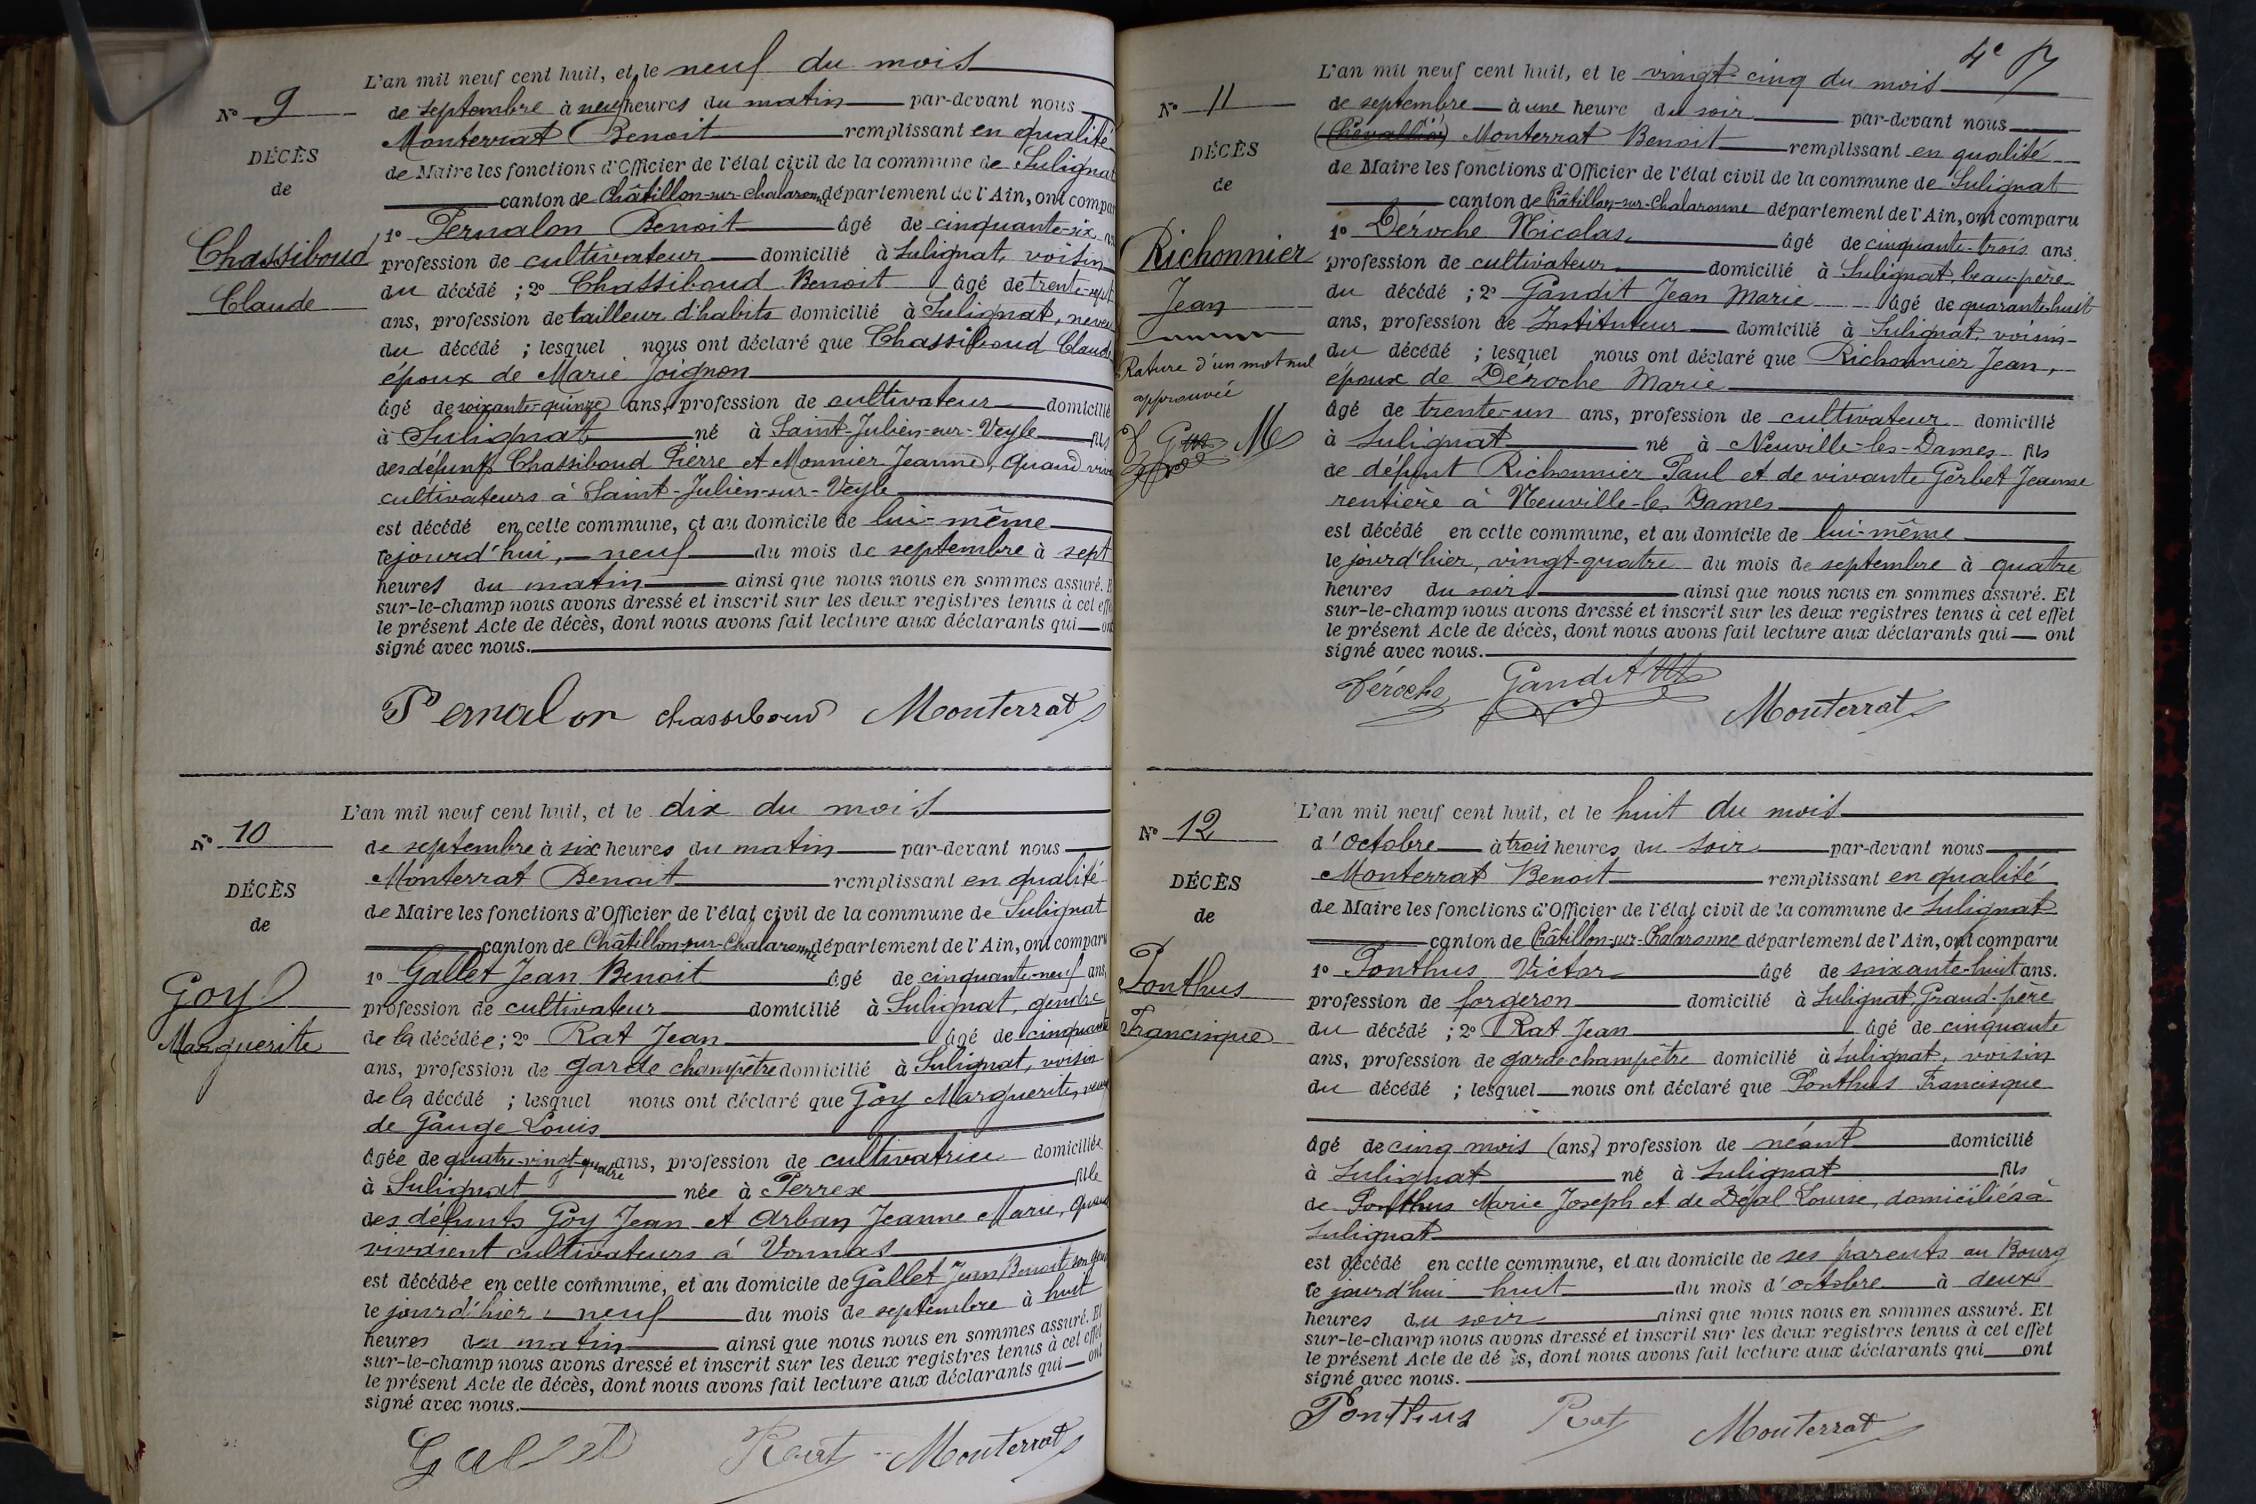 L'an mil neuf cent huit, et le neuf du mois
N° 9
de septembre à neuf heures du matin par-devant nous
Monterrat Benoit remplissant en qualité
DÉCÈS
de Maire les fonctions d'Officier de l'état civil de la commune de Sulignat
de
canton de Châtillon-sur-Chalaronne département de l'Ain, ont compar
1° Pernalon Benoit âgé de cinquante-six ans
Chassiboud
profession de cultivateur domicilié à Sulignat, voisin
du décédé ; 2° Chassiboud Benoit âgé de trente-sept
Claude
ans, profession de tailleur d'habits domicilié à Sulignat, neveu
du décédé ; lesquel nous ont déclaré que Chassiboud Claude
époux de Marie Joignon
âgé de soixante-quinze ans, profession de cultivateur domicilié
à Sulignat né à Saint-Julien-sur-Veyle fils
des défunts Chassiboud Pierre et Monnier Jeanne, quand viv
cultivateurs à Saint-Julien-sur-Veyle
est décédé en cette commune, et au domicile de lui-même
le jourd'hui, neuf du mois de septembre à sept
heures du matin ainsi que nous nous en sommes assuré. E
sur-le-champ nous avons dressé et inscrit sur les deux registres tenus à cet effe
le présent Acte de décès, dont nous avons fait lecture aux déclarants qui ont
signé avec nous.
Pernalon chassiboud Monterrat
L'an mil neuf cent huit, et le dix du mois
N° 10
de septembre à six heures du matin par-devant nous
Monterrat Benoit remplissant en qualité
DÉCÈS
de Maire les fonctions d'Officier de l'état civil de la commune de Sulignat
de
canton de Châtillon-sur-Chalaronne département de l'Ain, ont comparu
1° Gallet Jean Benoit âgé de cinquante-neuf ans,
Goy
profession de cultivateur domicilié à Sulignat, gendre
Marguerite
de la décédée ; 2° Rat Jean âgé de cinquante
ans, profession de garde champêtre domicilié à Sulignat, voisin
de la décédé ; lesquel nous ont déclaré que Goy Marguerite, veuve
de Gauge Louis
âgée de quatre-vingt-quatre ans, profession de cultivatrice domiciliée
à Sulignat née à Perrex fille
des défunts Goy Jean et Arban Jeanne Marie, quand
vivaient cultivateurs à Vonnas
est décédée en cette commune, et au domicile de Gallet Jean Benoit son gendre
le jourd'hier, neuf du mois de septembre à huit
heures du matin ainsi que nous nous en sommes assuré. Et
sur-le-champ nous avons dressé et inscrit sur les deux registres tenus à cet effet
le présent Acte de décès, dont nous avons fait lecture aux déclarants qui ont
signé avec nous.
Gallet Rat Monterrat
4e
L'an mil neuf cent huit, et le vingt-cinq du mois
N° 11
de septembre à une heure du soir par-devant nous
(Chevallier) Monterrat Benoit remplissant en qualité
DÉCÈS
de Maire les fonctions d'Officier de l'état civil de la commune de Sulignat
de
canton de Châtillon-sur-Chalaronne département de l'Ain, ont comparu
1° Déroche Nicolas âgé de cinquante-trois ans.
Richonnier
profession de cultivateur domicilié à Sulignat, beau-père
du décédé ; 2° Gandit Jean Marie âgé de quarante-huit
Jean
ans, profession de Instituteur domicilié à Sulignat, voisin
du décédé ; lesquel nous ont déclaré que Richonnier Jean,
Rature d'un mot nul
époux de Déroche Marie
approuvée
âgé de trente-un ans, profession de cultivateur domicilié
D G M
à Sulignat né à Neuville-les-Dames fils
de défunt Richonnier Paul et de vivante Gerbet Jeanne
rentière à Neuville-les-Dames
est décédé en cette commune, et au domicile de lui-même
le jourd'hier, vingt-quatre du mois de septembre à quatre
heures du soir ainsi que nous nous en sommes assuré. Et
sur-le-champ nous avons dressé et inscrit sur les deux registres tenus à cet effet
le présent Acte de décès, dont nous avons fait lecture aux déclarants qui ont
signé avec nous.
Déroche Gandit Monterrat
L'an mil neuf cent huit, et le huit du mois
N° 12
d'Octobre à trois heures du soir par-devant nous
Monterrat Benoit remplissant en qualité
DÉCÈS
de Maire les fonctions d'Officier de l'état civil de la commune de Sulignat
de
canton de Châtillon-sur-Chalaronne département de l'Ain, ont comparu
1° Ponthus Victor âgé de soixante-huit ans.
Ponthus
profession de forgeron domicilié à Sulignat, Grand-père
Francisque
du décédé ; 2° Rat Jean âgé de cinquante
ans, profession de garde champêtre domicilié à Sulignat, voisin
du décédé ; lesquel nous ont déclaré que Ponthus Francisque
âgé de cinq mois (ans,) profession de néant domicilié
à Sulignat né à Sulignat fils
de Ponthus Marie Joseph et de Louise, domiciliés à
Sulignat
est décédé en cette commune, et au domicile de ses parents au Bourg
le jourd'hui huit du mois d'octobre à deux
heures du soir ainsi que nous nous en sommes assuré. Et
sur-le-champ nous avons dressé et inscrit sur les deux registres tenus à cet effet
le présent Acte de dé ès, dont nous avons fait lecture aux déclarants qui ont
signé avec nous.
Ponthus Rat Monterrat